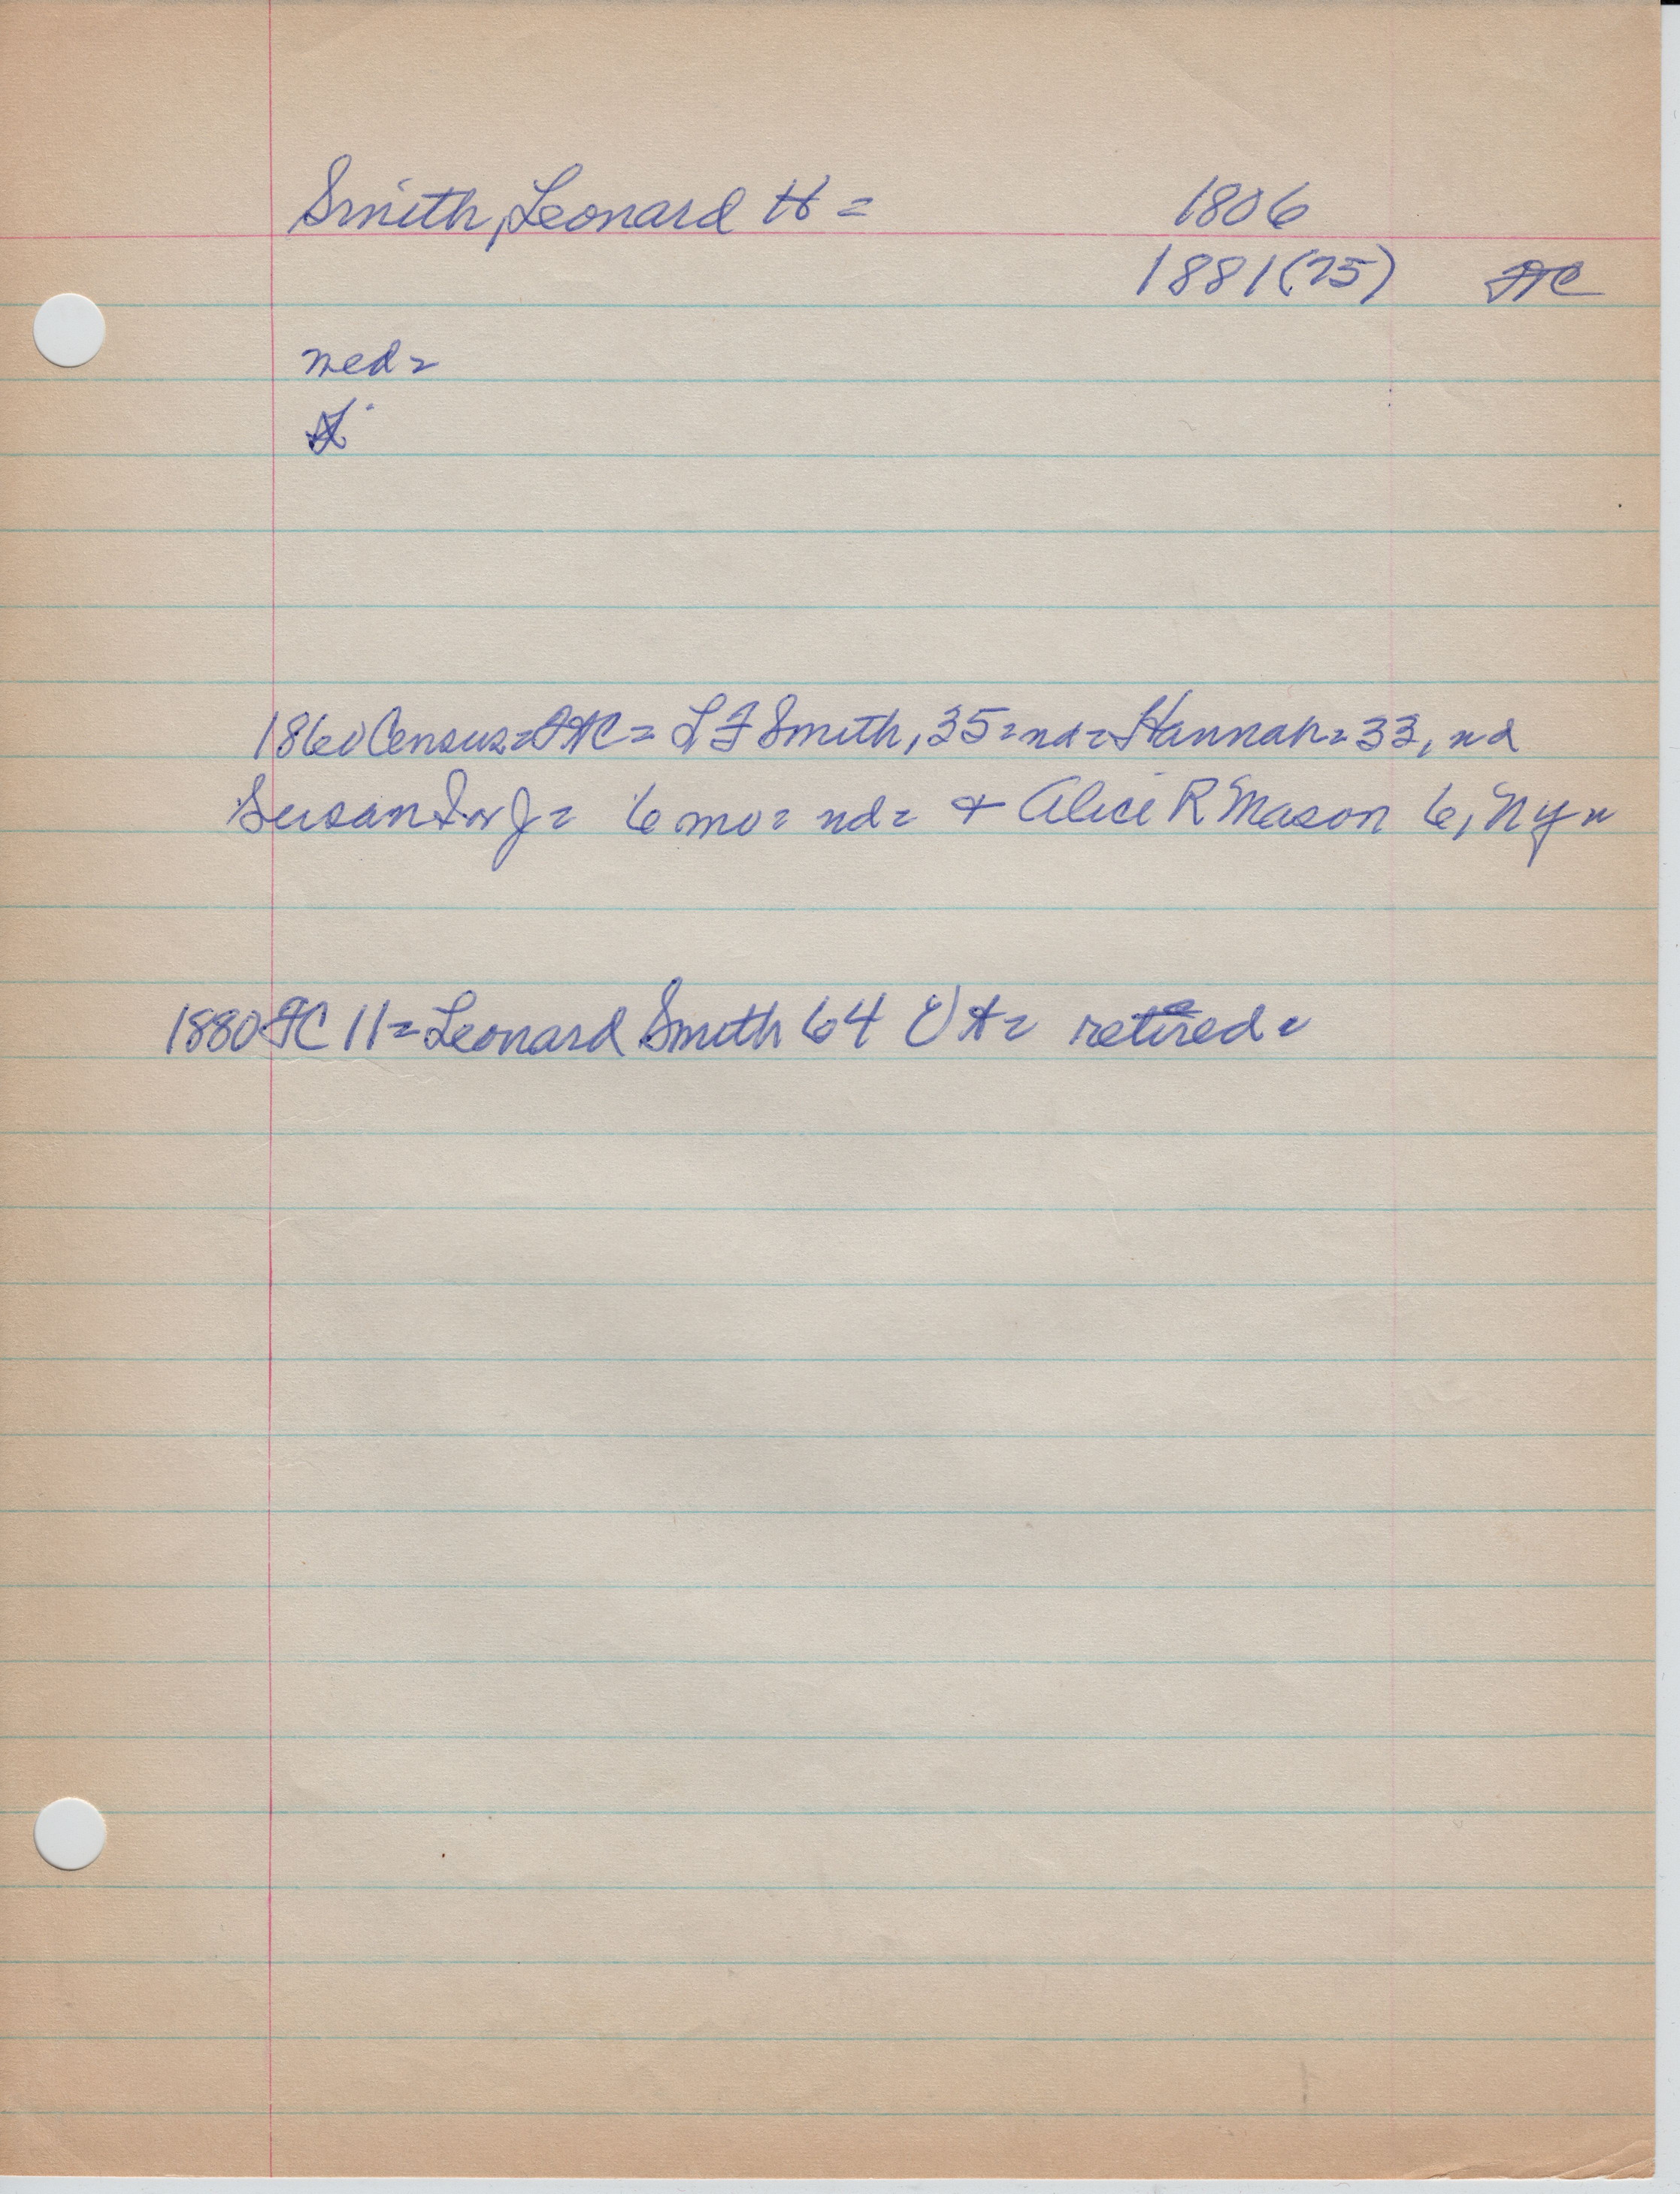 Smith, Leonard H = 1806
1881 (75)
ned =
1860 Census = = L F Smith, 35 = nd = Hannah = 33, nd
Susan I or J = 6 mo = nd = + Alice R Mason 6, Ny =
1880 FC 11 = Leonard Smith 64 Ct = retired =